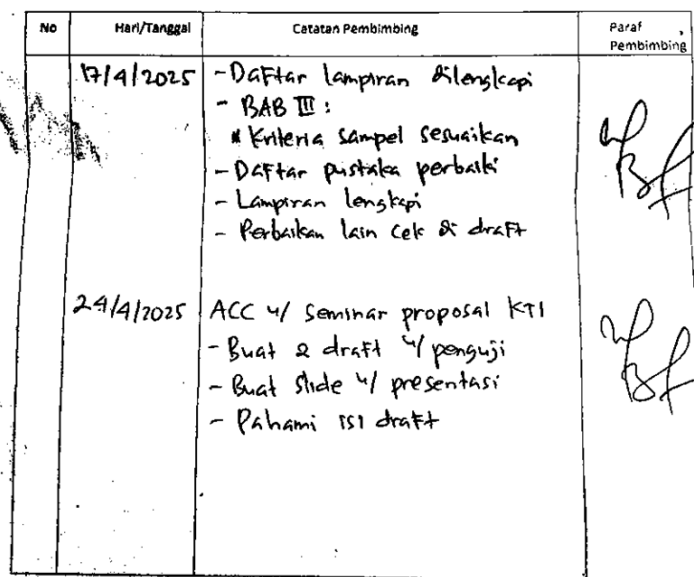 No Hari/Tanggal Catatan Pembimbing Paraf
Pembimbing
17/4/2025 - Daftar lampiran dilengkapi
- BAB III :
* Kriteria sampel sesuaikan
- Daftar pustaka perbaiki
- Lampiran lengkapi
- Perbaikan lain cek di draft
24/4/2025 ACC u/ seminar proposal KTI
- Buat 2 draft u/ penguji
- Buat slide u/ presentasi
- Pahami isi draft